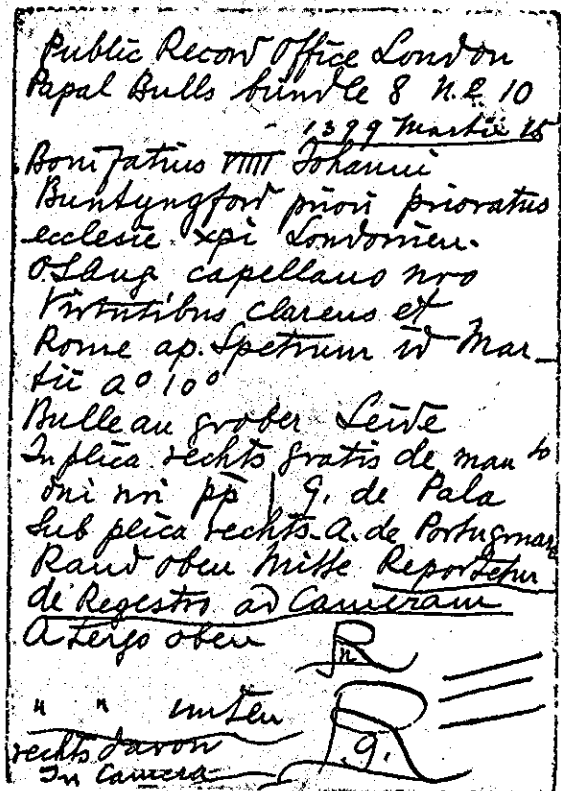 Public Record Office London
Papal Bulls bundle 8 N.º 10
1399 Martii 15
Bonifatius VIIII Johanni
Buntyngford priori prioratus
ecclesie xpi Londonien.
O.S.Aug capellano nro
Virtutibus clarens et
Rome ap. Spetrum id Mar-
tii aº 10º
Bulle an grober Seide
In plica rechts gratis de man to
dni nri pp | G. de Pala
Sub plica rechts A. de Portugruar
Rand oben Mitte Reportetur
de Registro ad Cameram
A tergo oben R
n
" " unten R
rechts davon g.
In Camera